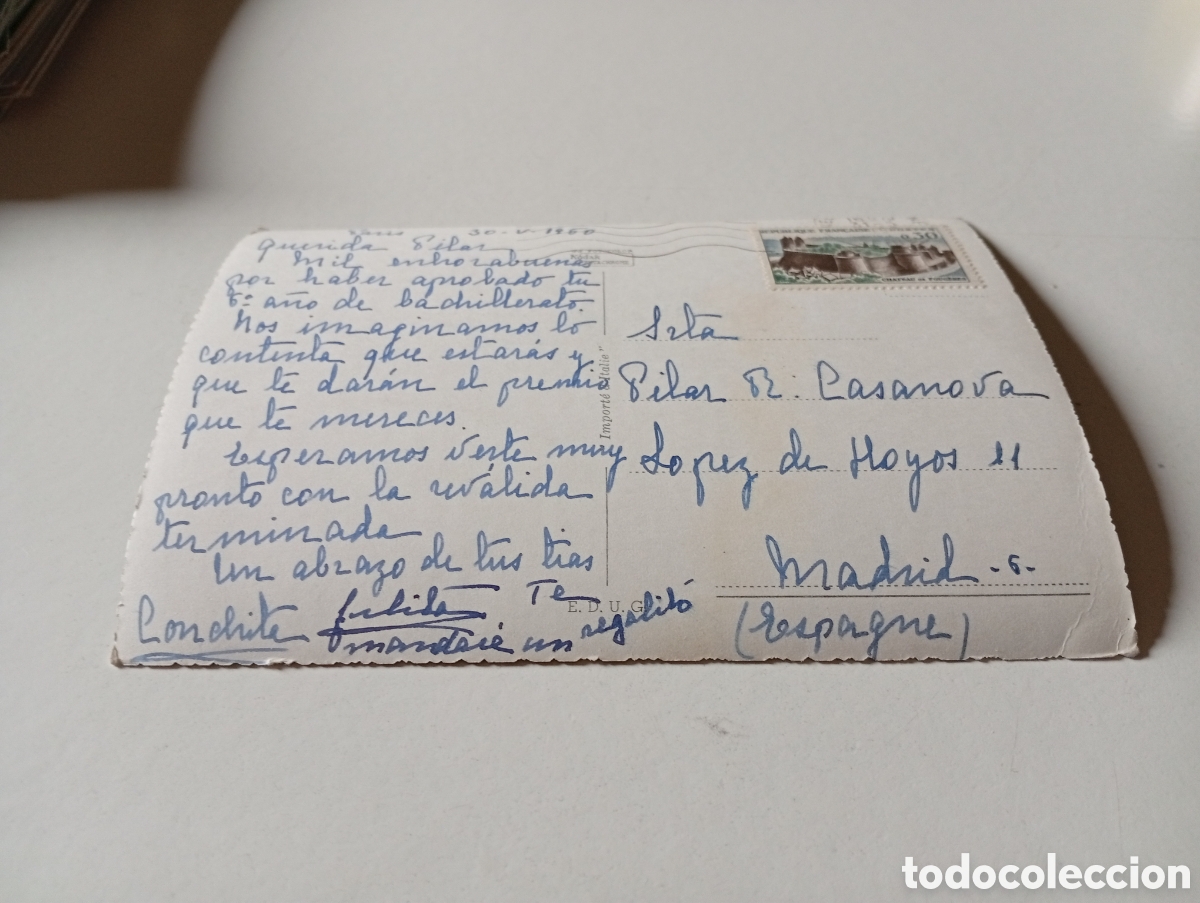 Paris 30-V-1960
Querida Pilar
Mil enhorabuenas
por haber aprobado tu
6º año de bachillerato.
Nos imaginamos lo
contenta que estarás y
que te darán el premio
que te mereces.
Esperamos verte muy
pronto con la reválida
terminada
Un abrazo de tus tias
Conchita
Te
mandaré un regalito
E. D. U. G.
Importé d'Italie"
0,30
Srta
Pilar R. Casanova
Lopez de Hoyos 11
Madrid -6-
(Espagne)
todocoleccion